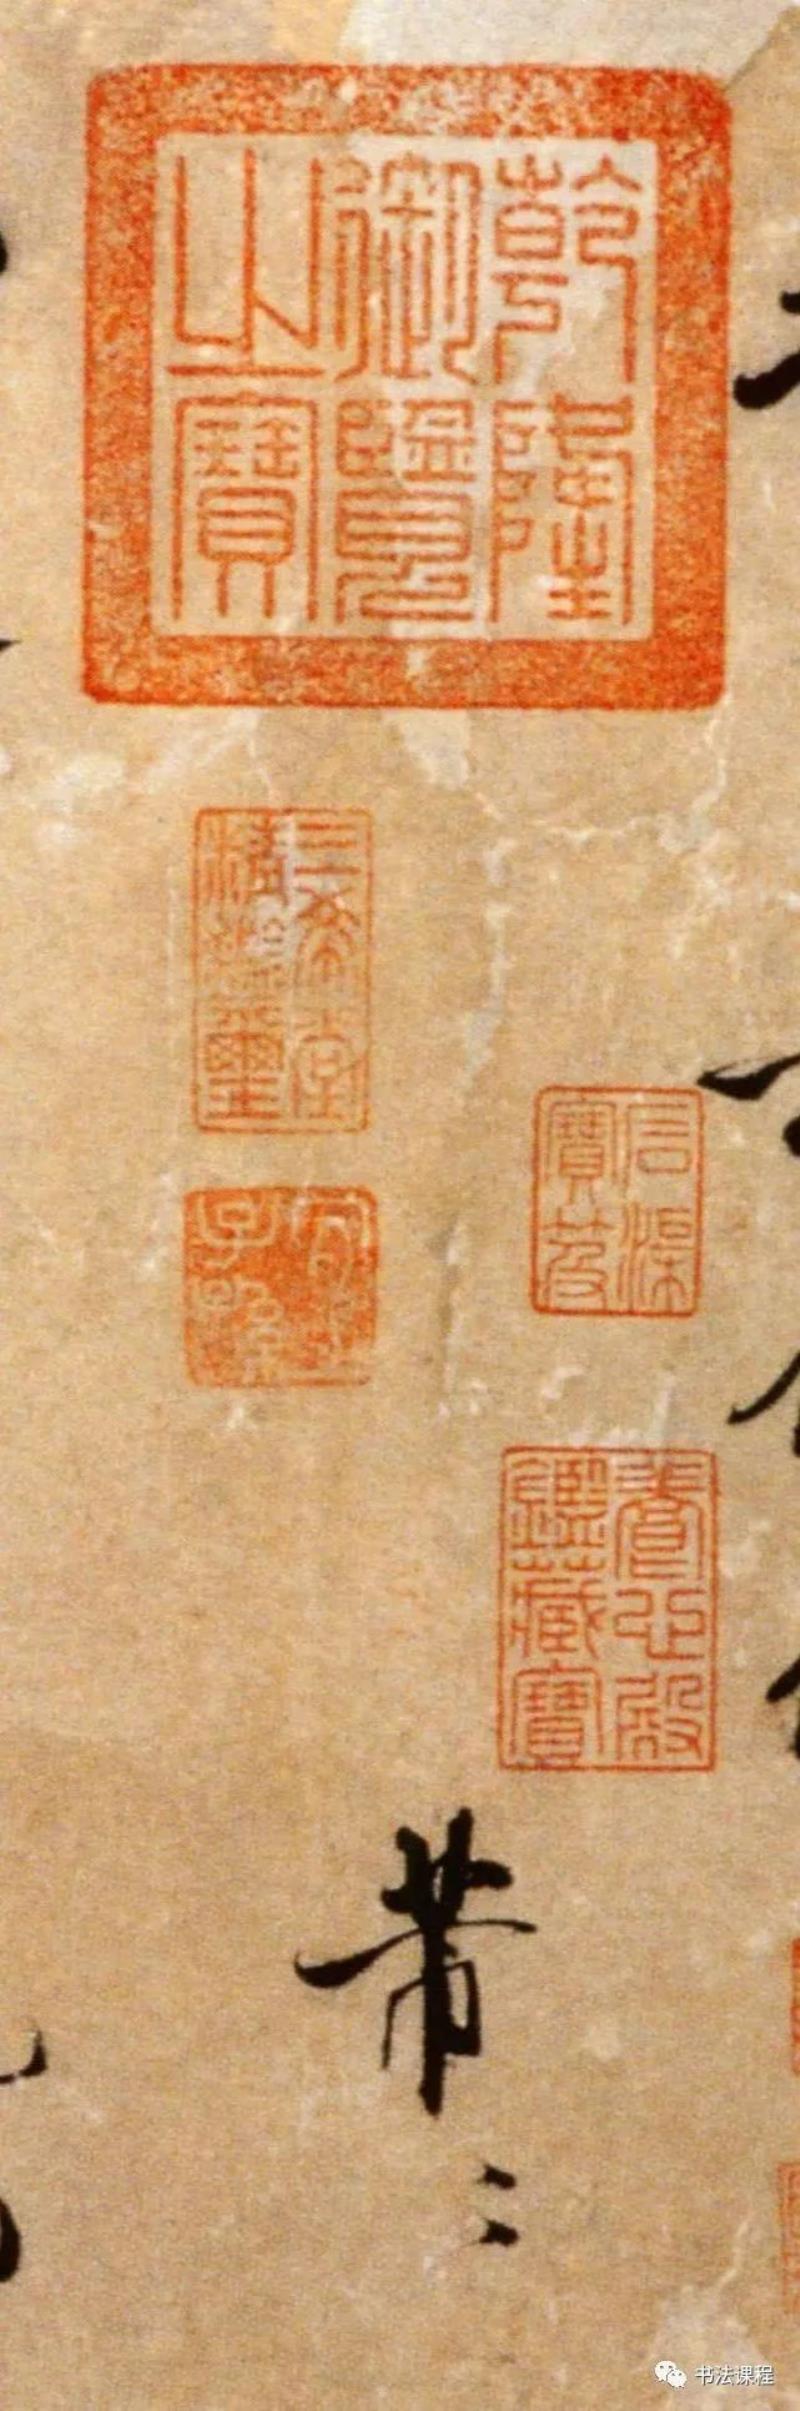 乾隆
御覽
之寶
三希堂
精鑒璽
宜
子孫
石渠
寶笈
養心殿
鑑藏寶
芾
书法课程